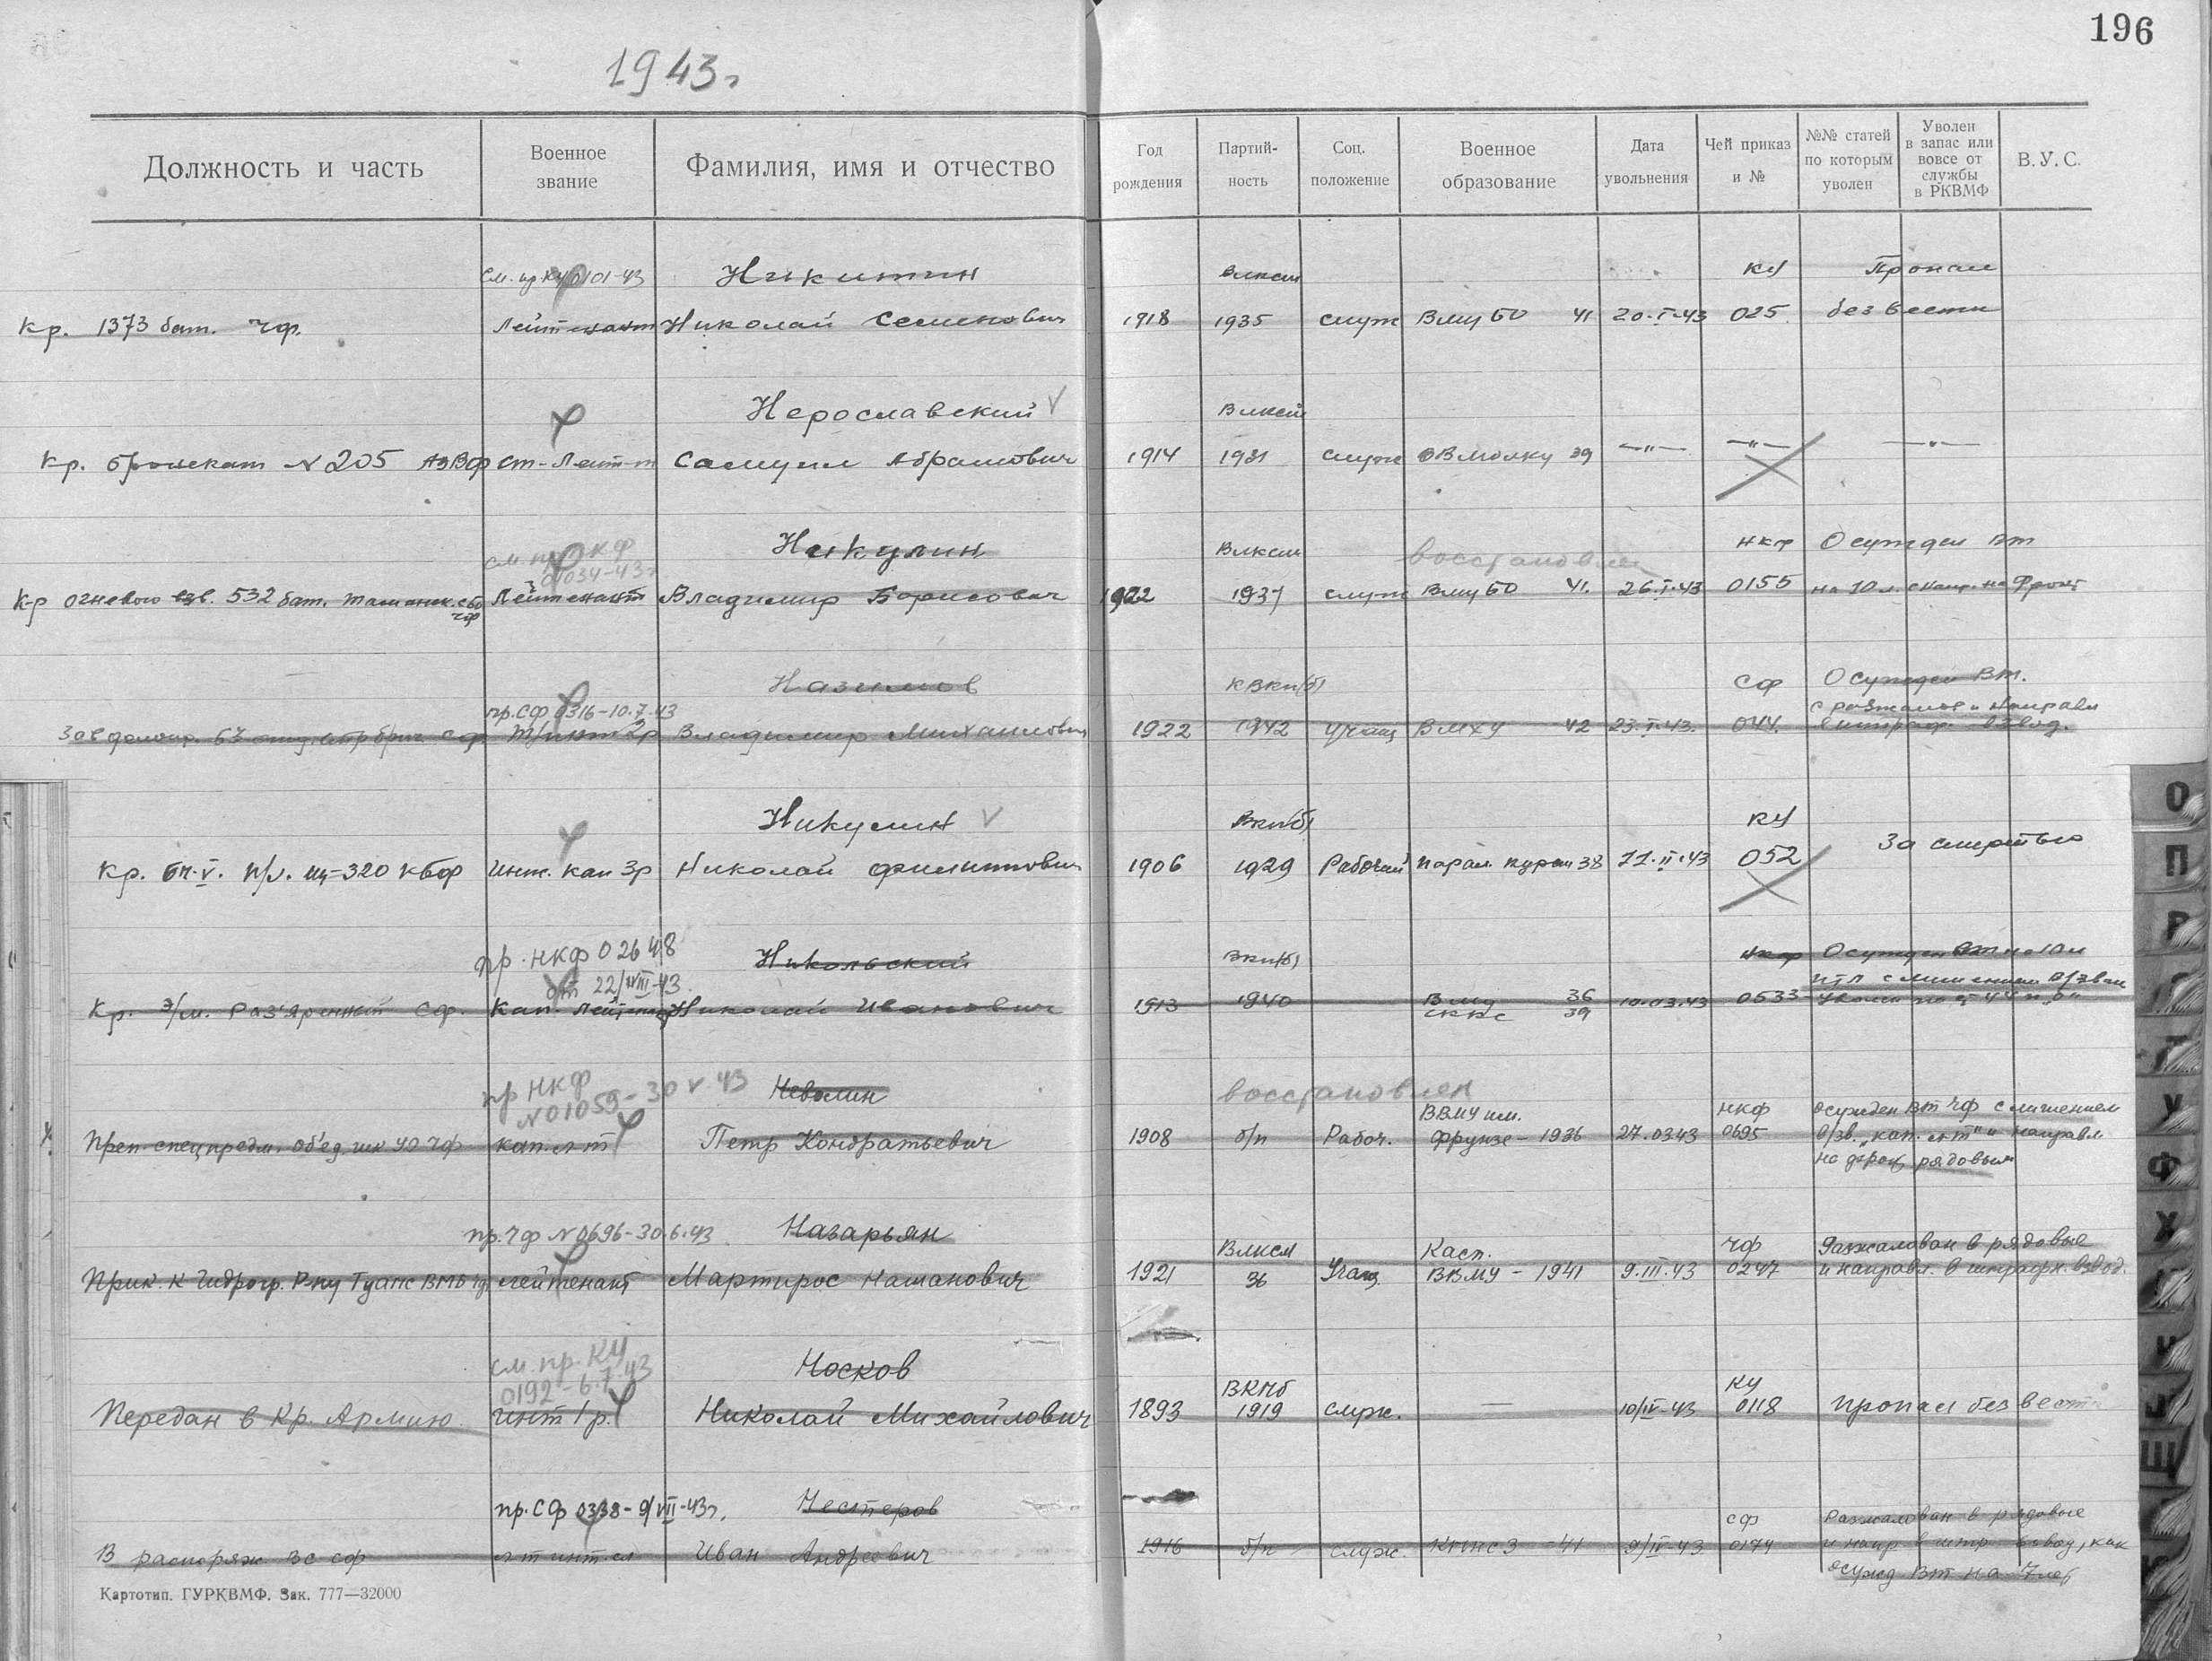 196
1943г
Должность и часть
Военное звание
Фамилия, имя и отчество
Год рождения
Партий-ность
Соц. положение
Военное образование
Дата увольнения
Чей приказ и №
№№ статей по которым уволен
Уволен в запас или вовсе от службы в РКВМФ
В.У.С.
см. пр КУ 0101-43 Никитин Влксм КУ Пропал
Кр. 1373 бат. ЧФ. Лейтенант Николай Семенович 1918 1935 служ ВМУБО 41 20-I-43 025 без вести
Нерославский Влксм
Кр. бронекат N 205 АзВФ ст-Лейт-т Самуил Абрамович 1914 1931 служ 39 —"— —"— —"—
см. пр НКФ Никулин Влксм восстановлен НКФ Осужден ВТ
01034-43г
К-р огневого взв. 532 бат. ЧФ Лейтенант Владимир Борисович 1922 1937 служ ВМУБО 41. 26.I.43 0155 на 10 л. с напр. на Фронт
Назимов КВКП(б) СФ Осужден ВТ.
пр. СФ 0316-10.7.43 с разжалов и направл
СФ Владимир Михаилович 1922 1942 учащ ВМХУ 42 23.I.43. 044. в штраф. взвод.
Никулин ВКП(б) КУ За смертью
Кр. БЧ-V. п/л. Щ-320 КБФ Инж. кап 3р Николай Филиппович 1906 1929 Рабочий Парал. курсы 38 11.II.43 052
пр. НКФ 02648 Никольский ВКП(б) НКФ Осужден ВТ на 10л
от 22/VIII-43. ИТЛ с лишением В/зван
Кр. э/м. Раз'яренный СФ. Кап. Лейтенант Николай Иванович 1913 1940 ВМУ 36 10.03.43 0533
СККС 39
пр НКФ N01059-30 V 43 Неволин восстановлен
ВВМУ им. НКФ осужден ВТ ЧФ с лишением
Преп. спец предм. об'ед. шк УО ЧФ кап. л-т Петр Кондратьевич 1908 б/п Рабоч. Фрунзе - 1936 27.0343 0695 в/зв. „кап. л-т" и направл
на фронт рядовым
пр. ЧФ N0696-30.6.43 Назарьян Влксм Касп. ЧФ Разжалован в рядовые
Прик. к Гидрогр. Р-ну Туапс ВМБ ЧФ лейтенант Мартирос Нашанович 1921 36 Учащ ВВМУ - 1941 9.III.43 0247 и направл. в штрафн. взвод.
см. пр. КУ 0192-6.7.43 Носков ВКПб КУ
Передан в Кр. Армию инт 1 р. Николай Михайлович 1893 1919 служ. — 10/IV-43 0118 Пропал без вести
пр. СФ 0338-9/VII-43г. Нестеров СФ Разжалован в рядовые
В распоряж ВС СФ Иван Андреевич 1916 б/п служ. - 41 9/IV-43 0174 и напр в штр взвод, как
осужд ВТ на 7 лет
Картотип. ГУРКВМФ. Зак. 777—32000
О
П
Р
С
Т
У
Ф
Х
Ц
Ч
Щ